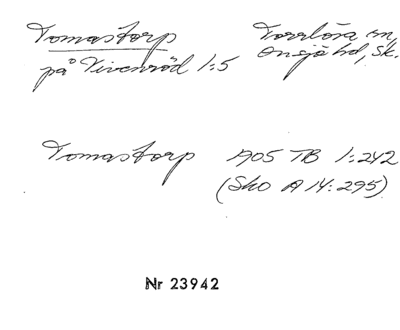 Tomastorp Torrlösa sn,
på Vivenröd 1:5 Onsjö hd, Sk.
Tomastorp 1905 TB 1:242
(Sko A 14:295)
Nr 23942